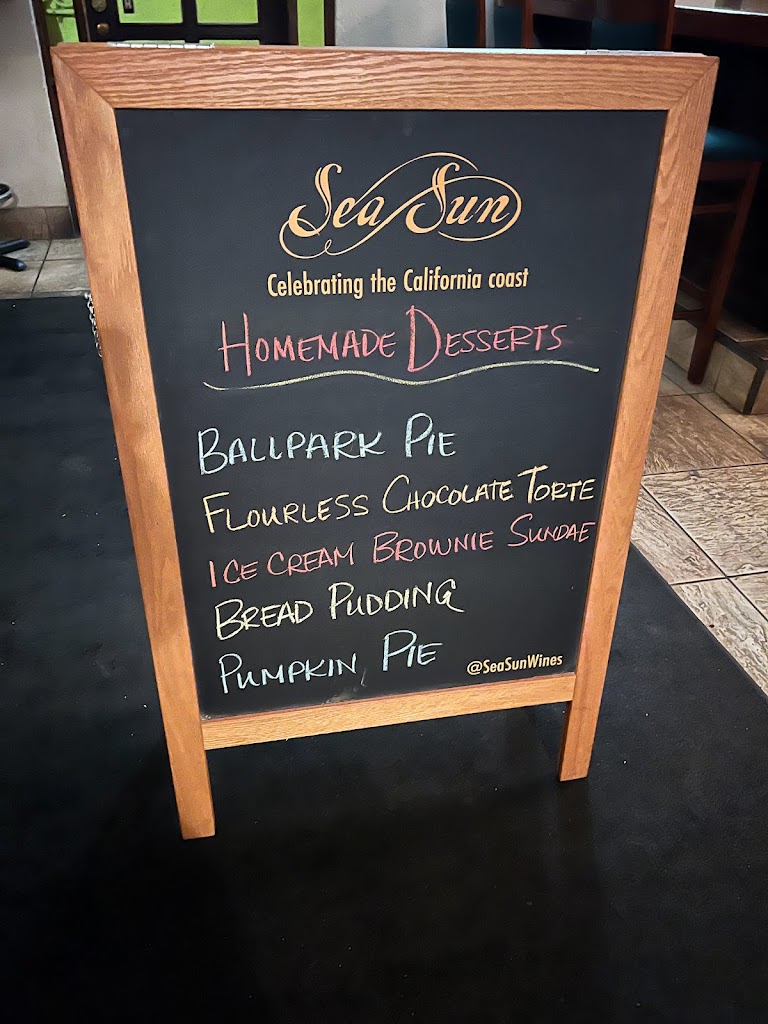 Sea Sun
Celebrating the California coast
HOMEMADE DESSERTS
BALLPARK PIE
FLOURLESS CHOCOLATE TORTE
ICE CREAM BROWNIE SUNDAE
BREAD PUDDING
PUMPKIN PIE
@SeaSunWines